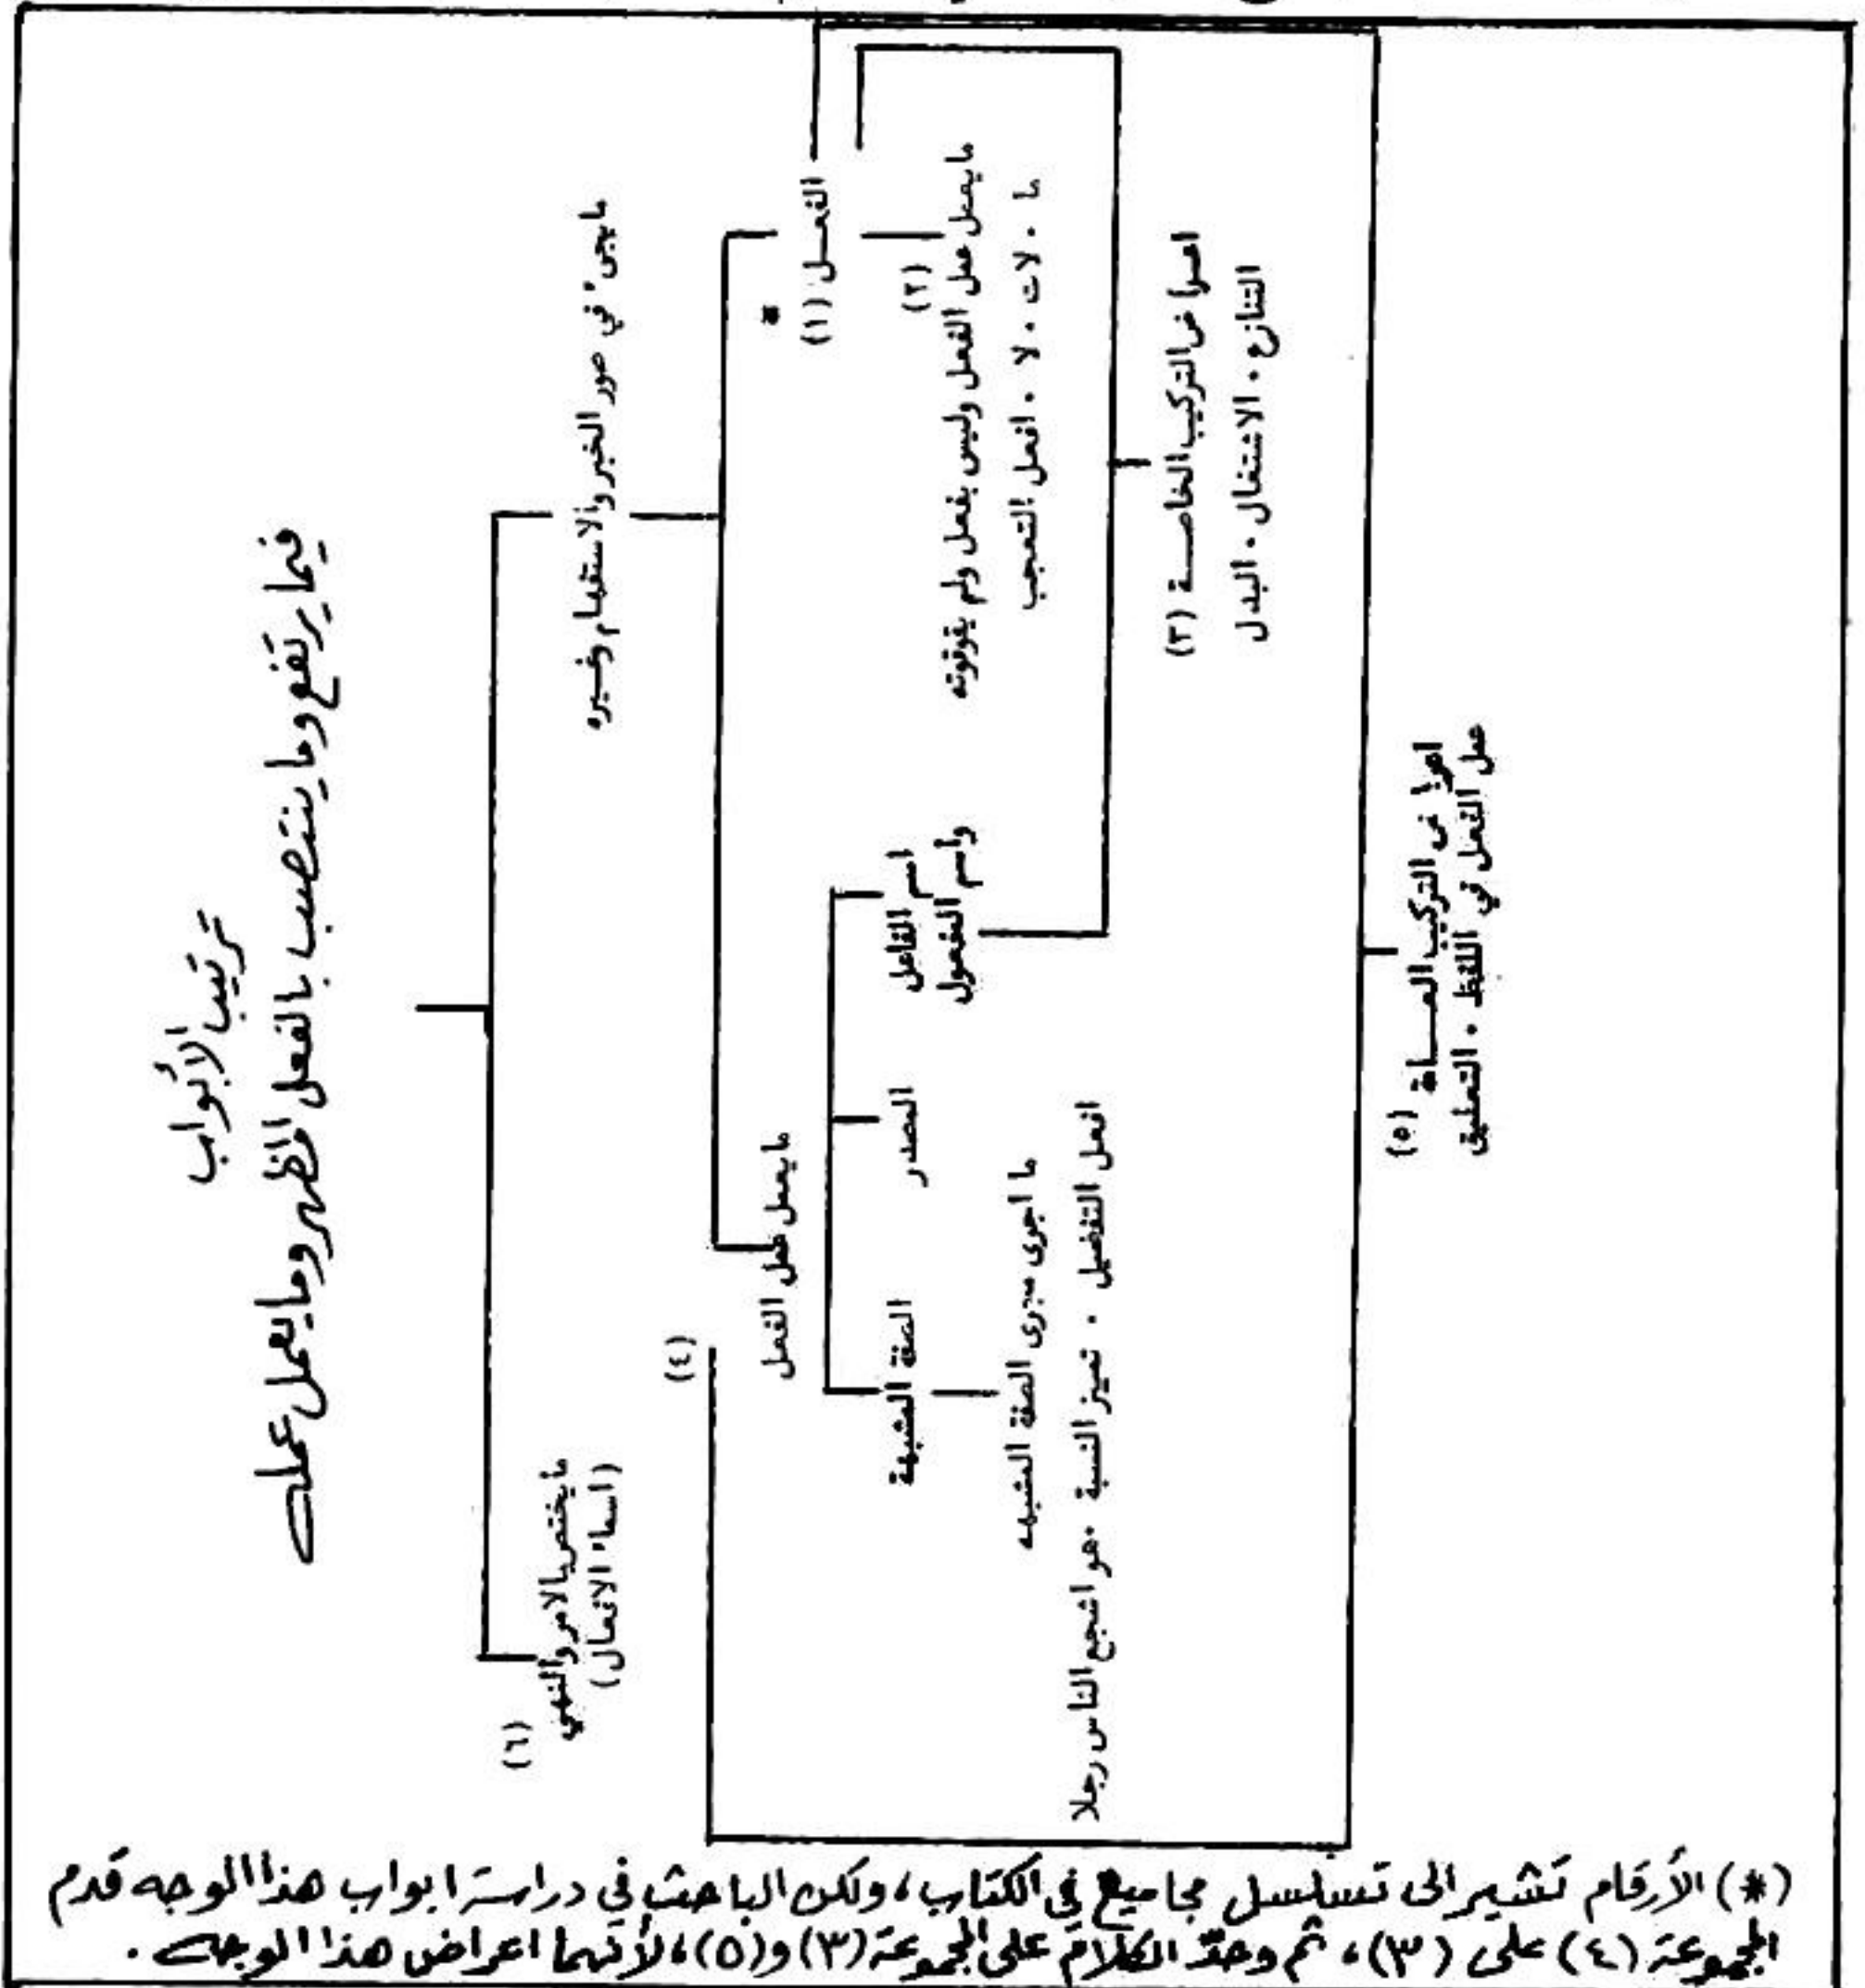 ترتيب الأبواب
فيما يرتفع وما ينتصب بالفعل المظهر وما يعمل عمله
ما يجيء في صور الخبر والاستفهام وغيره
(٦)
ما يختص بالامر والنهي
(اسماء الافعال)
*
الفعل (١)
(٢)
ما يعمل عمل الفعل وليس بفعل ولم يقو قوته
ما ٠ لات ٠ لا ٠ افعل التعجب
(٤)
ما يعمل عمل الفعل
اسم الفاعل
واسم المفعول
المصدر
الصفة المشبهة
ما اجرى مجرى الصفة المشبهه
افعل التفضيل ٠ تميز النسبة ٠ هو اشجع الناس رجلا
اعراض التركيب الخاصة (٣)
التنازع ٠ الاشتغال ٠ البدل
(٥)
اعراض التركيب العامة
عمل الفعل في اللفظ ٠ التعليق
(*) الأرقام تشير الى تسلسل مجاميع في الكتاب، ولكن الباحث في دراسة ابواب هذا الوجه قدم
المجموعة (٤) على (٣)، ثم وحد الكلام على المجموعة (٣) و(٥)، لأنهما اعراض هذا الوجه.